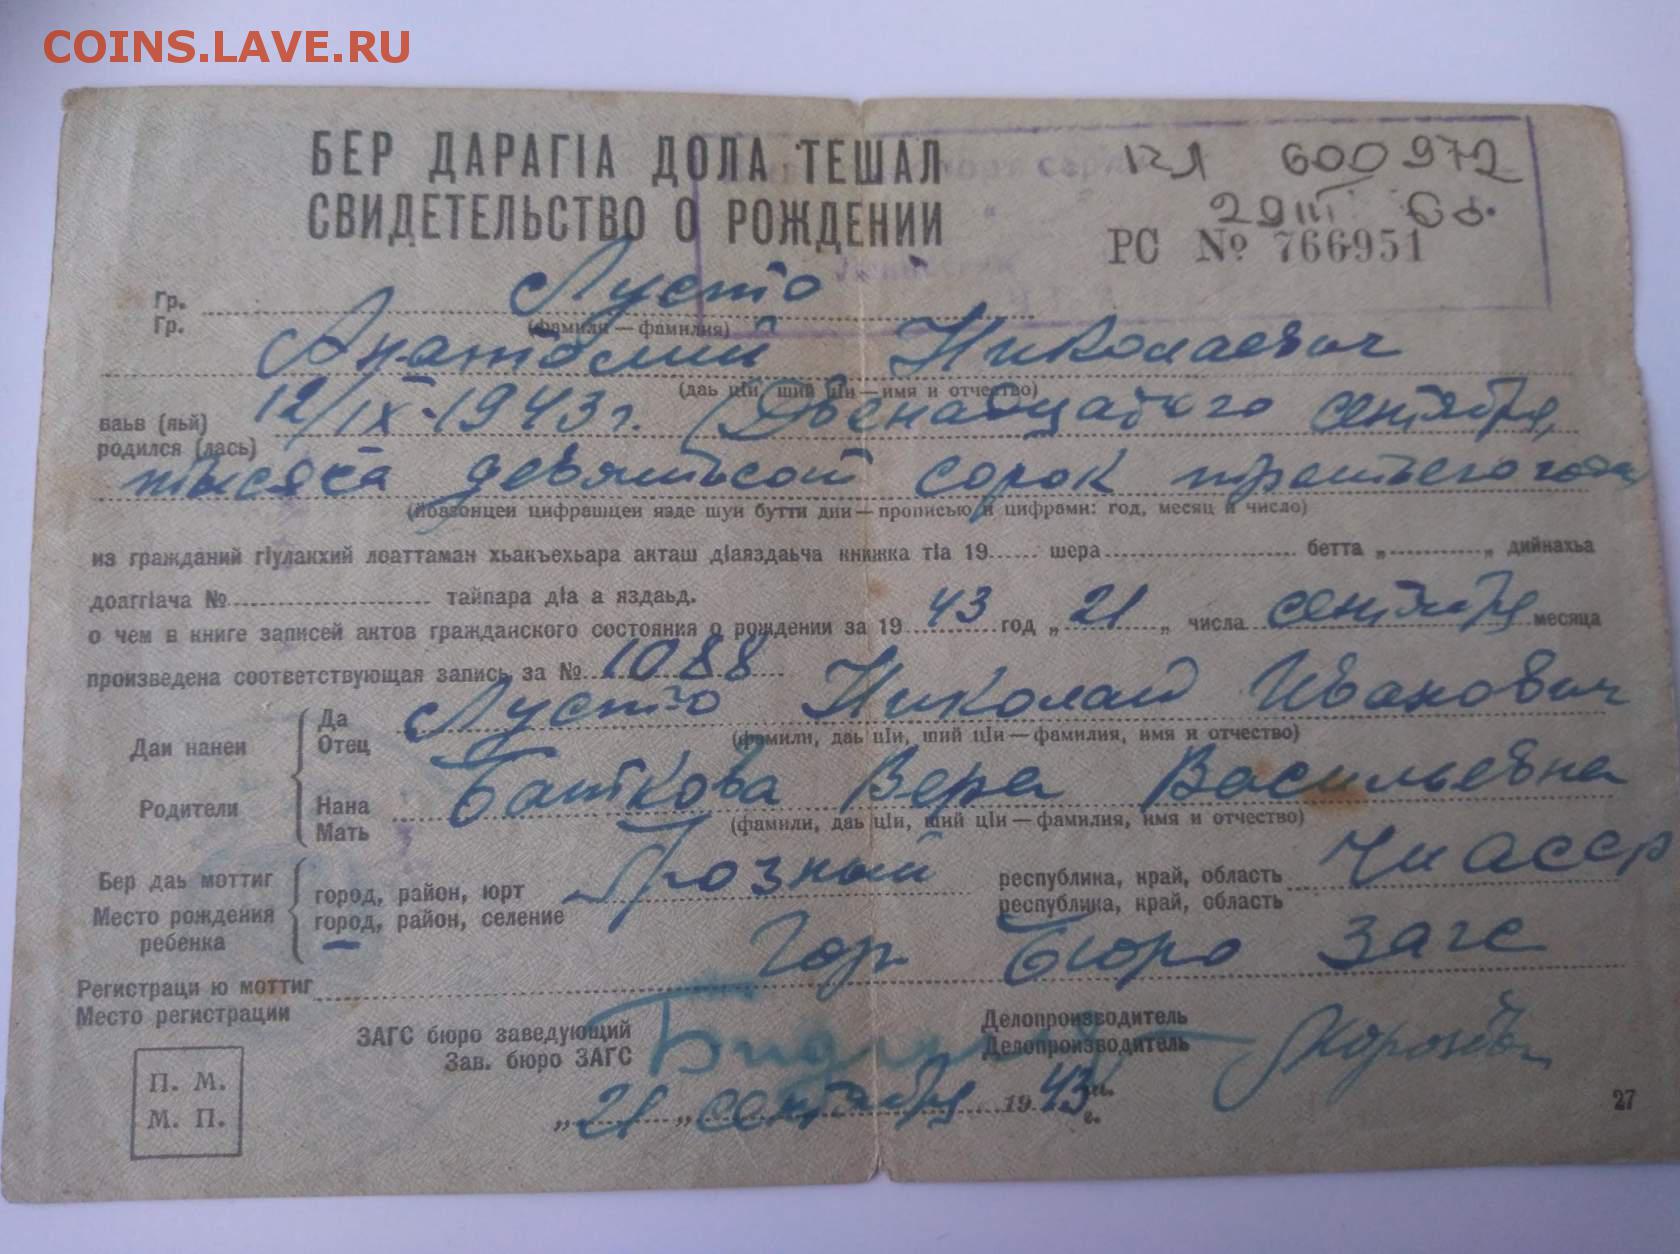 COINS.LAVE.RU
БЕР ДАРАГІА ДОЛА ТЕШАЛ
СВИДЕТЕЛЬСТВО О РОЖДЕНИИ
600972
29 III
РС № 766951
Гр. Лусто
Гр.
(фамили — фамилия)
Анатолий Николаевич
(даь цІи, ший цІи — имя и отчество)
ваьв (яьй) 12/IX-1943 г. (Двенадцатого сентября,
родился (лась)
тысяча девятьсот сорок третьего года
(йоазонцеи цифрашцеи язде шуи бутти дии — прописью и цифрами: год, месяц и число)
из гражданий гІулакхий лоаттаман хьакъехьара акташ дІаяздаьча книжка тІа 19 шера бетта „ „ дийнахьа
доаггІача № тайпара дІа а яздаьд.
о чем в книге записей актов гражданского состояния о рождении за 1943 год „21„ числа сентября месяца
произведена соответствующая запись за № 1088
Да Лусто Николай Иванович
Даи нанеи Отец (фамили, даь цІи, ший цІи — фамилия, имя и отчество)
Родители Нана Баткова Вера Васильевна
Мать (фамили, даь цІи, ший цІи — фамилия, имя и отчество)
Бер даь моттиг город, район, юрт Грозный республика, край, область ЧИАССР
Место рождения город, район, селение республика, край, область
ребенка —
Гор Бюро Загс
Регистраци ю моттиг
Место регистрации
ЗАГС бюро заведующий Делопроизводитель
Зав. бюро ЗАГС Делопроизводитель
П. М.
М. П.
„21„ сентября 1943 г.
27